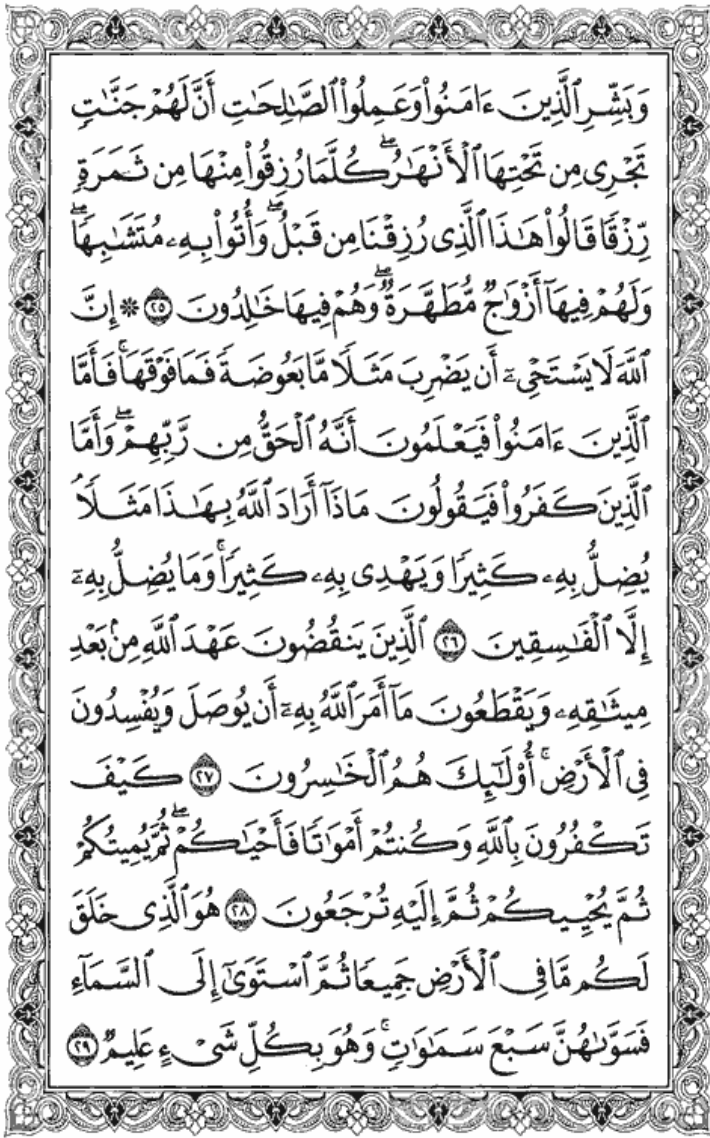 وَبَشِّرِ ٱلَّذِينَ ءَامَنُوا۟ وَعَمِلُوا۟ ٱلصَّـٰلِحَـٰتِ أَنَّ لَهُمْ جَنَّـٰتٍ
تَجْرِى مِن تَحْتِهَا ٱلْأَنْهَـٰرُ ۖ كُلَّمَا رُزِقُوا۟ مِنْهَا مِن ثَمَرَةٍ
رِّزْقًا قَالُوا۟ هَـٰذَا ٱلَّذِى رُزِقْنَا مِن قَبْلُ ۖ وَأُتُوا۟ بِهِۦ مُتَشَـٰبِهًا ۖ
وَلَهُمْ فِيهَآ أَزْوَٰجٌ مُّطَهَّرَةٌ ۖ وَهُمْ فِيهَا خَـٰلِدُونَ ٢٥ ۞ إِنَّ
ٱللَّهَ لَا يَسْتَحْىِۦٓ أَن يَضْرِبَ مَثَلًا مَّا بَعُوضَةً فَمَا فَوْقَهَا ۚ فَأَمَّا
ٱلَّذِينَ ءَامَنُوا۟ فَيَعْلَمُونَ أَنَّهُ ٱلْحَقُّ مِن رَّبِّهِمْ ۖ وَأَمَّا
ٱلَّذِينَ كَفَرُوا۟ فَيَقُولُونَ مَاذَآ أَرَادَ ٱللَّهُ بِهَـٰذَا مَثَلًا ۘ
يُضِلُّ بِهِۦ كَثِيرًا وَيَهْدِى بِهِۦ كَثِيرًا ۚ وَمَا يُضِلُّ بِهِۦٓ
إِلَّا ٱلْفَـٰسِقِينَ ٢٦ ٱلَّذِينَ يَنقُضُونَ عَهْدَ ٱللَّهِ مِنۢ بَعْدِ
مِيثَـٰقِهِۦ وَيَقْطَعُونَ مَآ أَمَرَ ٱللَّهُ بِهِۦٓ أَن يُوصَلَ وَيُفْسِدُونَ
فِى ٱلْأَرْضِ ۚ أُو۟لَـٰٓئِكَ هُمُ ٱلْخَـٰسِرُونَ ٢٧ كَيْفَ
تَكْفُرُونَ بِٱللَّهِ وَكُنتُمْ أَمْوَٰتًا فَأَحْيَـٰكُمْ ۖ ثُمَّ يُمِيتُكُمْ
ثُمَّ يُحْيِيكُمْ ثُمَّ إِلَيْهِ تُرْجَعُونَ ٢٨ هُوَ ٱلَّذِى خَلَقَ
لَكُم مَّا فِى ٱلْأَرْضِ جَمِيعًا ثُمَّ ٱسْتَوَىٰٓ إِلَى ٱلسَّمَآءِ
فَسَوَّىٰهُنَّ سَبْعَ سَمَـٰوَٰتٍ ۚ وَهُوَ بِكُلِّ شَىْءٍ عَلِيمٌ ٢٩